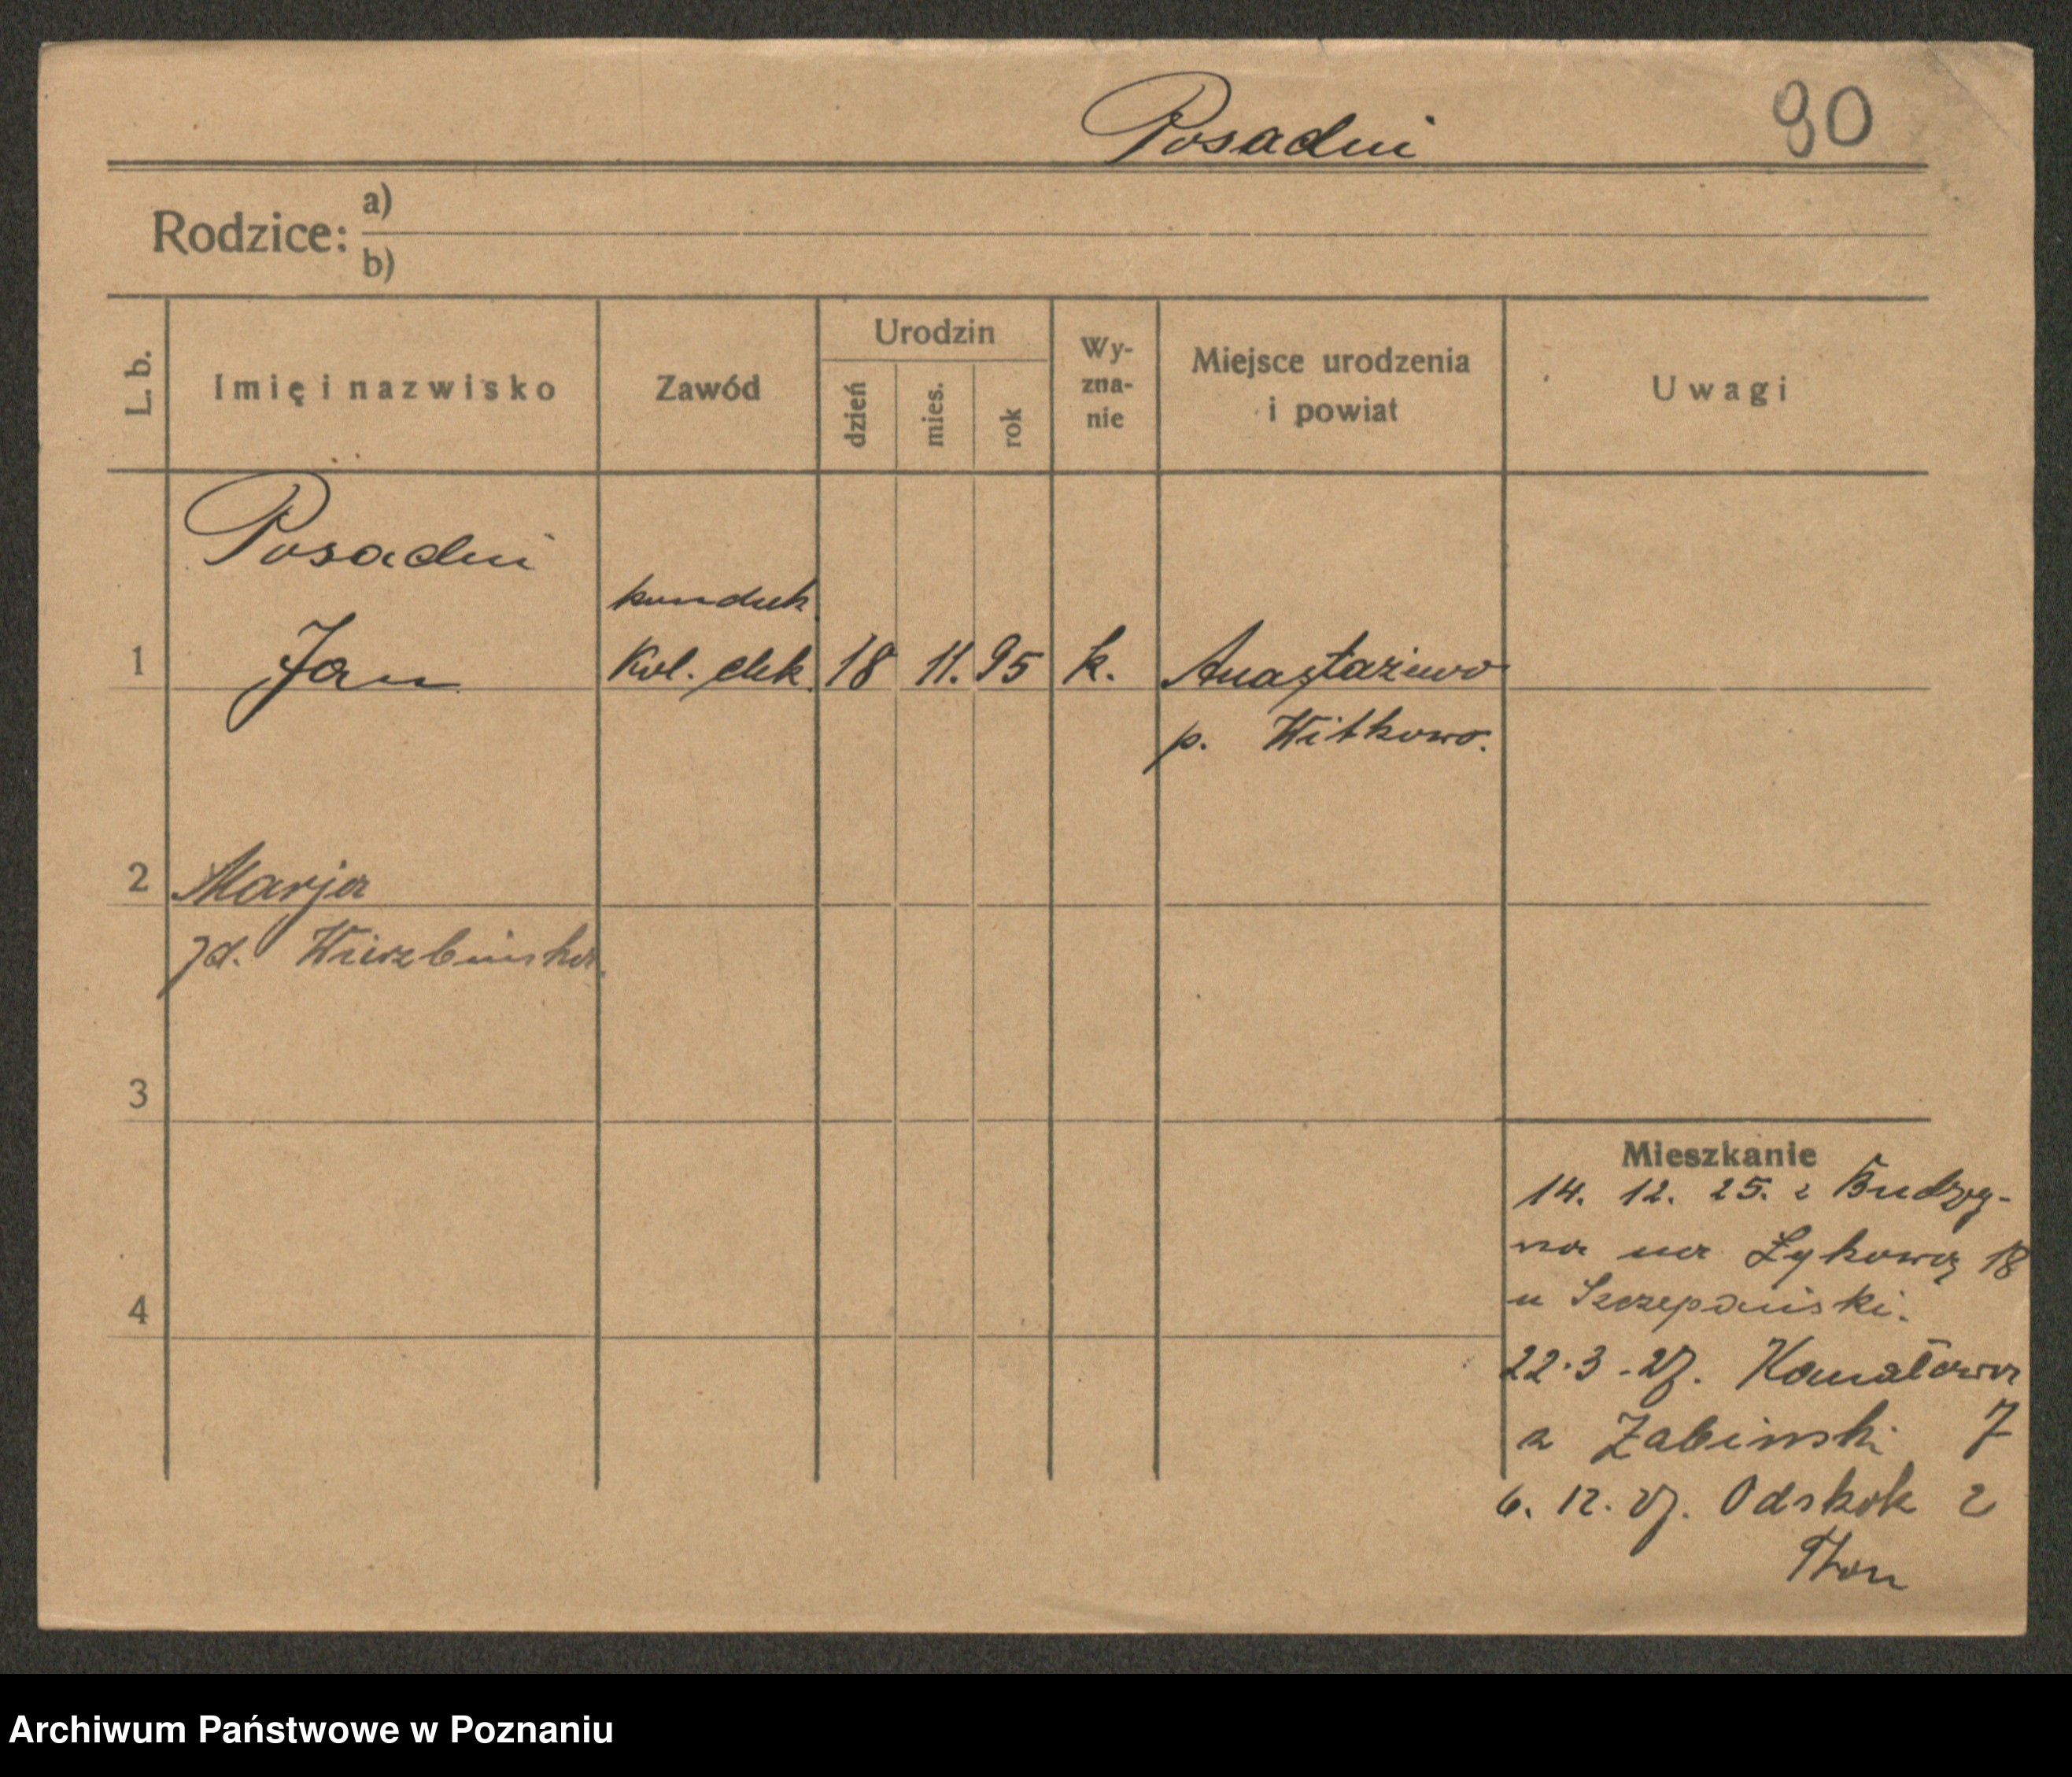 Posadni 90
Rodzice: a)
b)
L. b. Imię i nazwisko Zawód Urodzin dzień mies. rok Wy-zna-nie Miejsce urodzenia i powiat Uwagi
Posadni
konduk.
1 Jan Kol. elek. 18 11. 95 k. Anastaziewo
p. Witkowo.
2 Marja
zd. Wierzbińska
3
Mieszkanie
14. 12. 25. z Budzy-
na na Łykową 18
u Szczepański.
4
22.3.27. Kanałowa
a Żabiński 7
6. 12. 27. Odskok 2
Archiwum Państwowe w Poznaniu